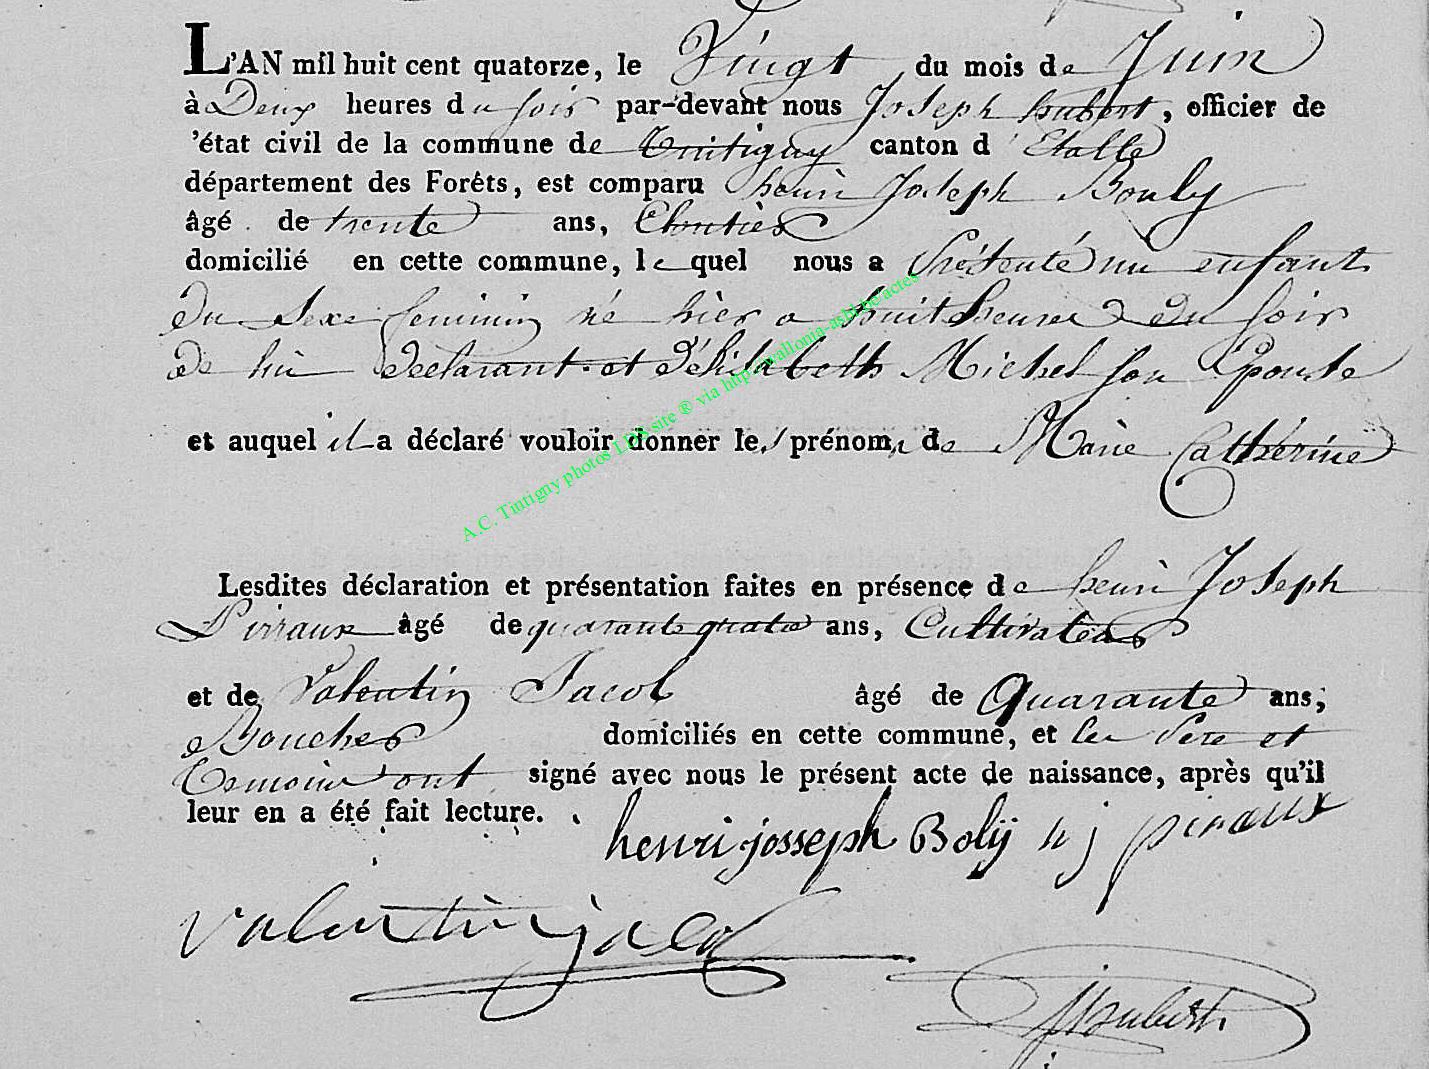 L'AN mil huit cent quatorze, le Vingt du mois de Juin
à Deux heures du soir par-devant nous Joseph hubert, officier de
'état civil de la commune de Tintigny canton d' Etalle
département des Forêts, est comparu henri Joseph Bouly
âgé de trente ans,
domicilié en cette commune, lequel nous a présenté un enfant
du sexe feminin né hier a huit heures du soir
de lui déclarant et d'Elisabeth Michel son Epouse
et auquel il a déclaré vouloir donner les prénoms de Marie Catherine
Lesdites déclaration et présentation faites en présence de henri Joseph
Pirraux âgé de quarante quatre ans, Cultivateur
et de Valentin Jacob âgé de Quarante ans,
Boucher domiciliés en cette commune, et les Pere et
Temoins ont signé avec nous le présent acte de naissance, après qu'il
leur en a été fait lecture.
henri josseph Bolij h j piraux
valentin jacob
JHubert
A.C. Tintigny photos LDA site ® via http://wallonia-asbl.be/actes